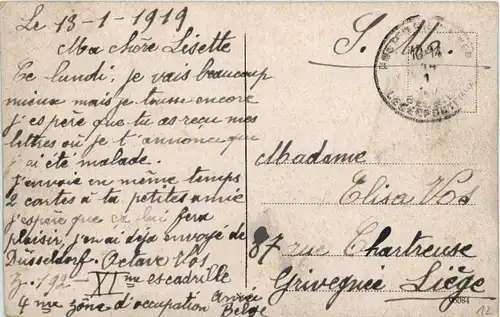 Le 13-1-1919
Ma chère Lisette
Ce lundi, je vais beaucoup
mieux mais je tousse encore
j'espère que tu as reçu mes
lettres où je t'annonce que
j'ai été malade.
J'envoie en même temps
2 cartes à ta petites amie
j'espère que ça lui fera
plaisir, j'en ai déja envoyé de
Dusseldorf. Octave Vos
Z. 192 - XIme escadrille
4me zône d'occupation Armée
Belge
S. M.
10-14
14
1
Madame
Elisa Vos
87 rue Chartreuse
Grivegnée Liège
12